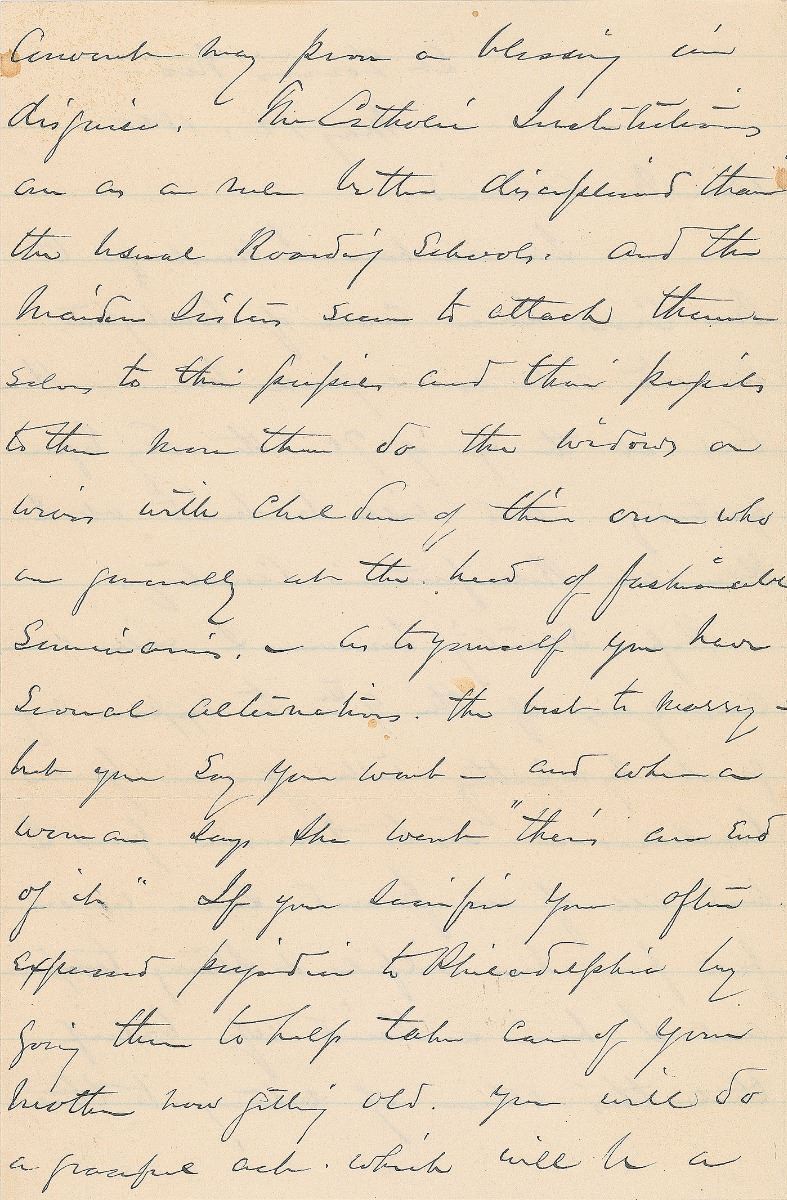 Convent may prove a blessing in
disguise. The Catholic Institutions
are as a rule better disciplined than
the usual Boarding Schools. and the
Maiden Sisters seem to attach them-
selves to their pupils and their pupils
to them more than do the widows or
wives with children of their own who
are generally at the head of fashionable
Seminaries. - As to yourself you have
Several alternatives. the best to marry -
but you Say you wont - and when a
woman says she wont "theres an End
of it" If you Sacrifice your often
expressed prejudice to Philadelphia by
going there to help take care of your
Mother now getting old. you will do
a graceful act. which will be a